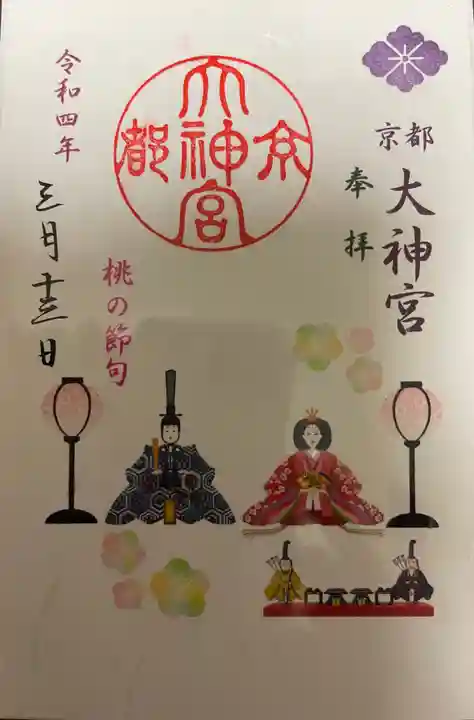 京都
大神宮
奉拝
京都大神宮
桃の節句
令和四年
三月十三日